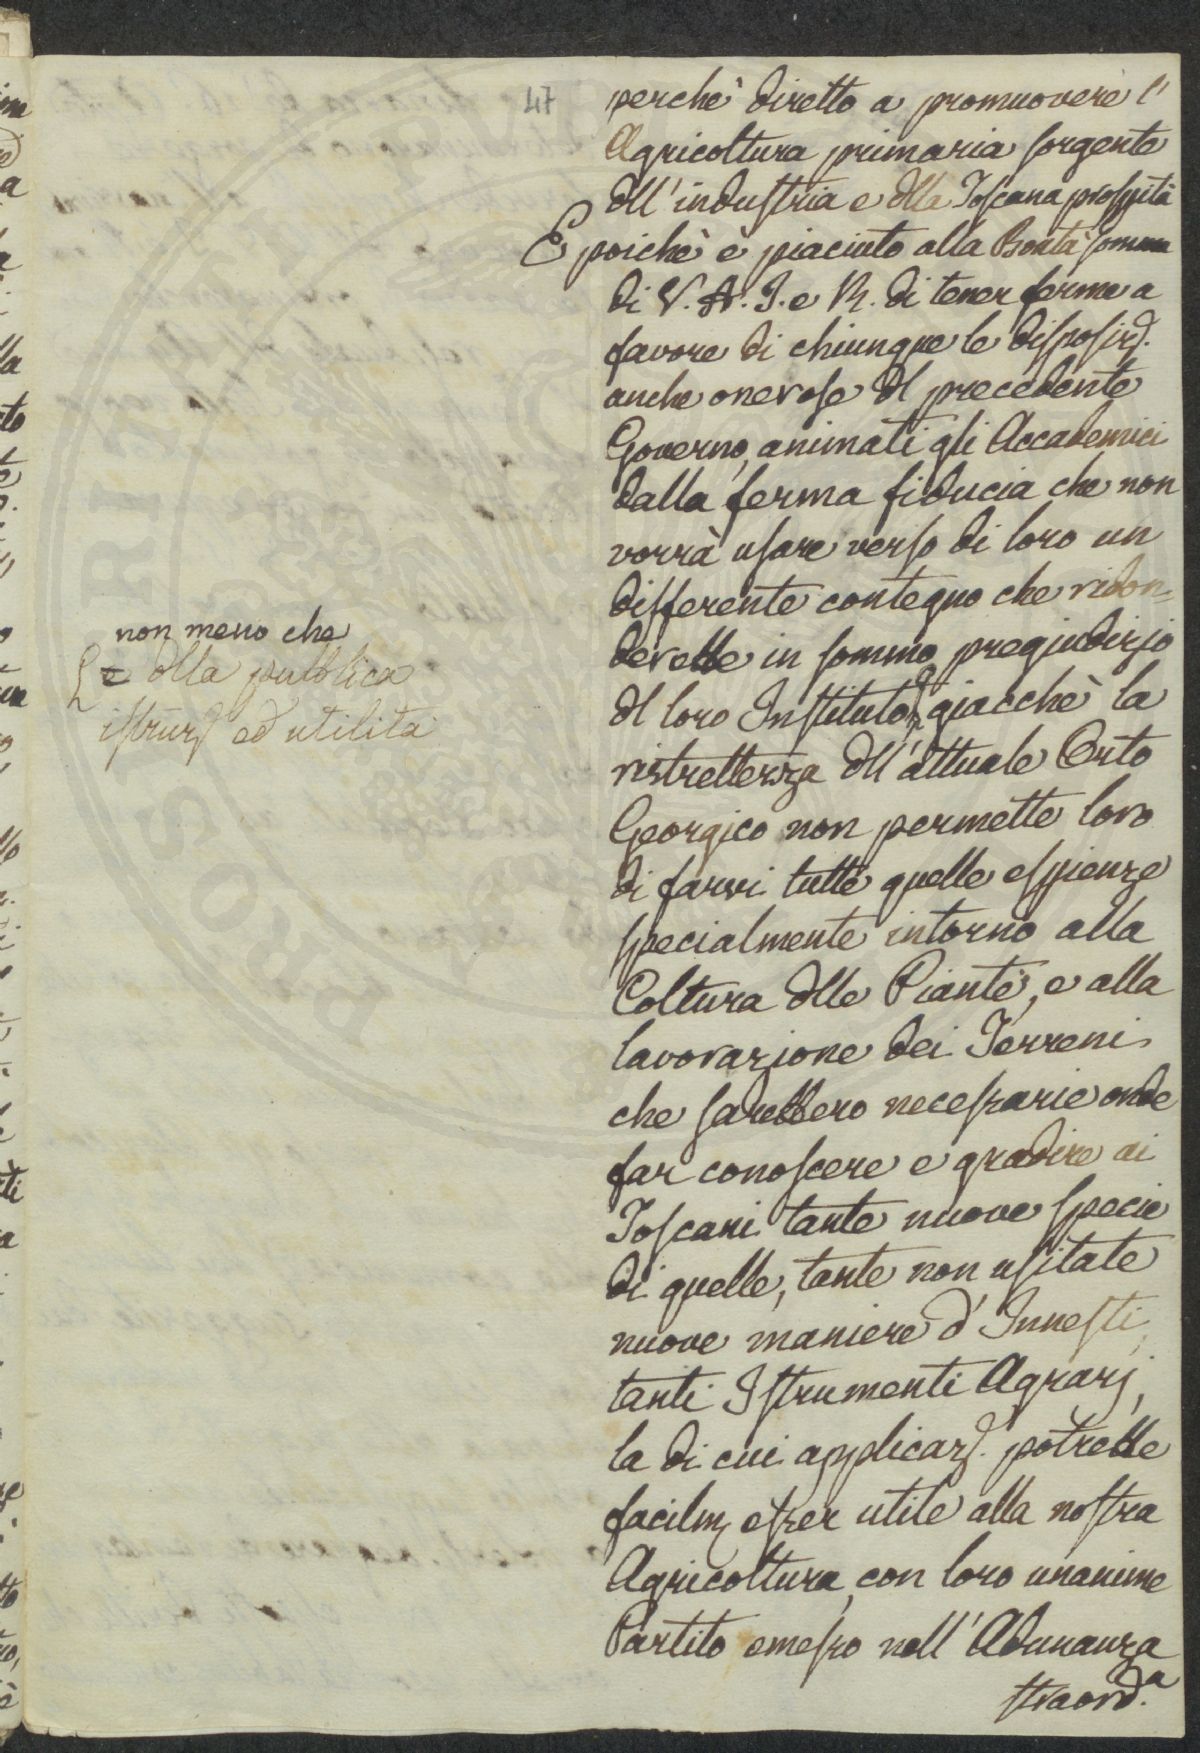 47
perchè diretto a promuovere l'
Agricoltura primaria sorgente
dll'industria e dlla Toscana prosp̱ità
E poichè è piaciuto alla Bontà somma
di V. A. I. e R. di tener ferme a
favore di chiunque le disposiz̃.
anche onerose dl precedente
Governo, animati gli Accademici
dalla ferma fiducia che non
vorrà usare verso di loro un
differente contegno che ridon=
derebbe in sommo pregiudizio
dl loro Instituto, giacchè la
ristrettezza dll'attuale Orto
Georgico non permette loro
di farvi tutte quelle esp̱ienze
specialmente intorno alla
Coltura dlle Piante, e alla
lavorazione dei Terreni
che sarebbero necessarie onde
far conoscere e gradire ai
Toscani tante nuove specie
di quelle, tante non usitate
nuove maniere d'Innesti,
tanti Istrumenti Agrarj,
la di cui applicaz̃. potrebbe
facilm̃ esser utile alla nostra
Agricoltura, con loro unanime
Partito emesso nell'Adunanza
straord.ª
non meno che
e dlla pubblica
istruz̃ ed utilità